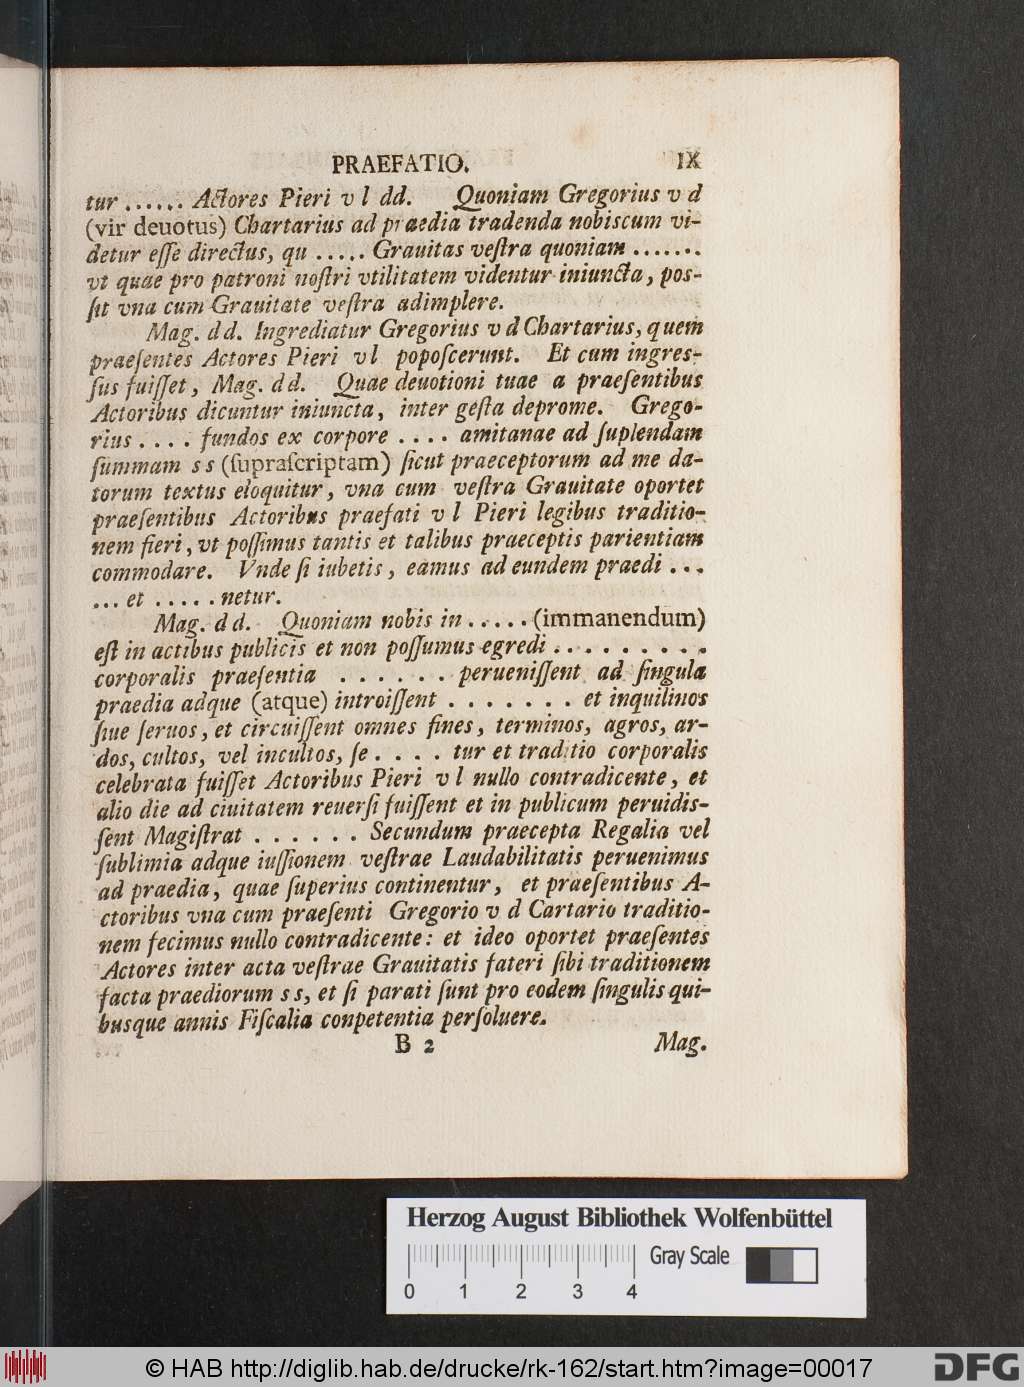 PRAEFATIO. IX
tur ...... Actores Pieri v l dd. Quoniam Gregorius v d
(vir deuotus) Chartarius ad praedia tradenda nobiscum vi-
detur eſſe directus, qu ..... Grauitas veſtra quoniam .......
vt quae pro patroni noſtri vtilitatem videntur iniuncta, pos-
ſit vna cum Grauitate veſtra adimplere.
Mag. dd. Ingrediatur Gregorius v d Chartarius, quem
praeſentes Actores Pieri v l popoſcerunt. Et cum ingreſ-
ſus fuiſſet, Mag. dd. Quae deuotioni tuae a praeſentibus
Actoribus dicuntur iniuncta, inter geſta deprome. Grego-
rius .... fundos ex corpore .... amitanae ad ſuplendam
ſummam s s (ſupraſcriptam) ſicut praeceptorum ad me da-
torum textus eloquitur, vna cum veſtra Grauitate oportet
praeſentibus Actoribus praefati v l Pieri legibus traditio-
nem fieri, vt poſſimus tantis et talibus praeceptis parientiam
commodare. Vnde ſi iubetis, eamus ad eundem praedi ...
... et ..... netur.
Mag. dd. Quoniam nobis in ..... (immanendum)
eſt in actibus publicis et non poſſumus egredi .........
corporalis praeſentia ...... perueniſſent ad ſingula
praedia adque (atque) introiſſent ....... et inquilinos
ſiue ſeruos, et circuiſſent omnes fines, terminos, agros, ar-
dos, cultos, vel incultos, ſe .... tur et traditio corporalis
celebrata fuiſſet Actoribus Pieri v l nullo contradicente, et
alio die ad ciuitatem reuerſi fuiſſent et in publicum peruidis-
ſent Magiſtrat ...... Secundum praecepta Regalia vel
ſublimia adque iuſſionem veſtrae Laudabilitatis peruenimus
ad praedia, quae ſuperius continentur, et praeſentibus A-
ctoribus vna cum praeſenti Gregorio v d Cartario traditio-
nem fecimus nullo contradicente: et ideo oportet praeſentes
Actores inter acta veſtrae Grauitatis fateri ſibi traditionem
facta praediorum s s, et ſi parati ſunt pro eodem ſingulis qui-
busque annis Fiſcalia conpetentia perſoluere.
B 2 Mag.
Herzog August Bibliothek Wolfenbüttel
Gray Scale
0 1 2 3 4
© HAB http://diglib.hab.de/drucke/rk-162/start.htm?image=00017
DFG